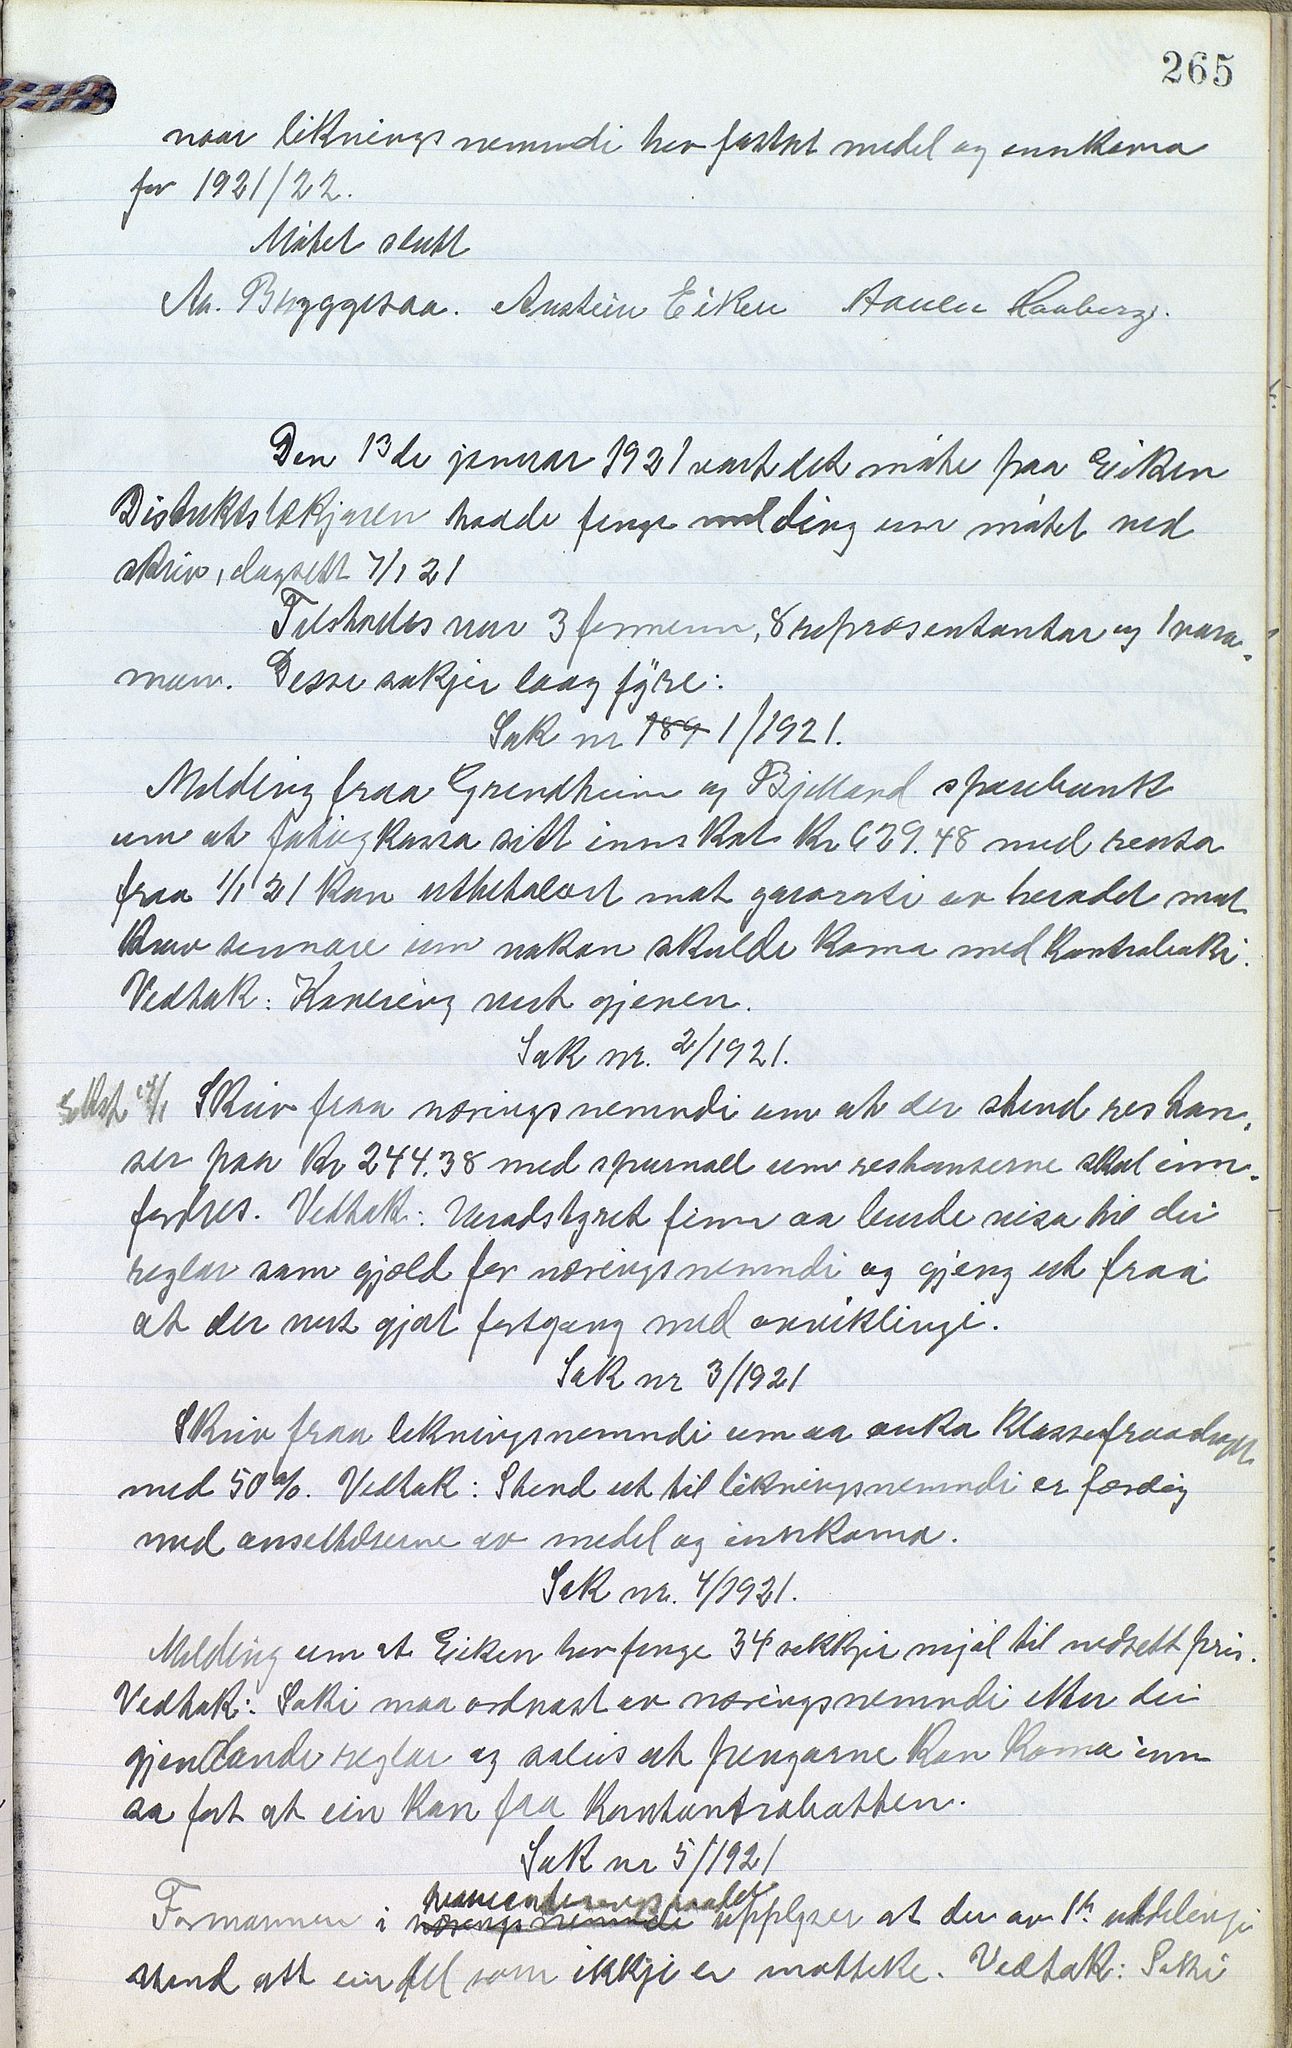 265
naar liknings nemndi hev fastset medel og innkoma
for 1921/22.
Møtet slutt
Aa. Bryggesaa. Anstein Eiken Aanen Haaberg.
Den 13de januar 1921 vart det møte paa Eiken
Distriktslækjaren hadde fenge melding um møtet ved
skriv, dagsett 7/1 21
Tilstades var 3 formenn, 8 representantar og 1 vara-
mann. Desse sakjer laag fyre:
Sak nr 189 1/1921.
Melding fraa Grendheim og Bjelland sparebank
um at fatigkassa sitt innskot Kr 629.48 med renta
fraa 1/1 21 kan utbetalast mot garanti av heradet mot
krav sennare um nokon skulde koma med kontrabøki.
Vedtak: Kassering vert gjeven.
Sak nr. 2/1921.
Skriv fraa næringsnemndi um at der stend restan-
ser paa Kr 244.38 med spursmaal um restanserne skal inn-
fordres. Vedtak: Heradstyret finn aa burde visa til dei
reglar som gjeld for næringsnemndi og gjeng ut fraa
at der vert gjort fortgang med avviklingi.
Sak nr 3/1921
Skriv fraa likningsnemndi um aa auka klassefraadraget
med 50%. Vedtak: Stend ut til likningsnemndi er færdig
med ansettelserne av medel og innkoma.
Sak nr. 4/1921.
Melding um at Eiken hev fenge 34 sekkjer mjøl til nedsett pris.
Vedtak: Saki maa ordnast av næringsnemndi etter dei
gjeldande reglar og soleis at pengarne kan koma inn
sa fort at ein kan faa kontantrabatten.
Sak nr 5/1921
provianteringsraadet
Formannen i næringsnemndi upplyser at der av 1ste utdelingi
stend att ein del som ikkje er motteke. Vedtak: Saki